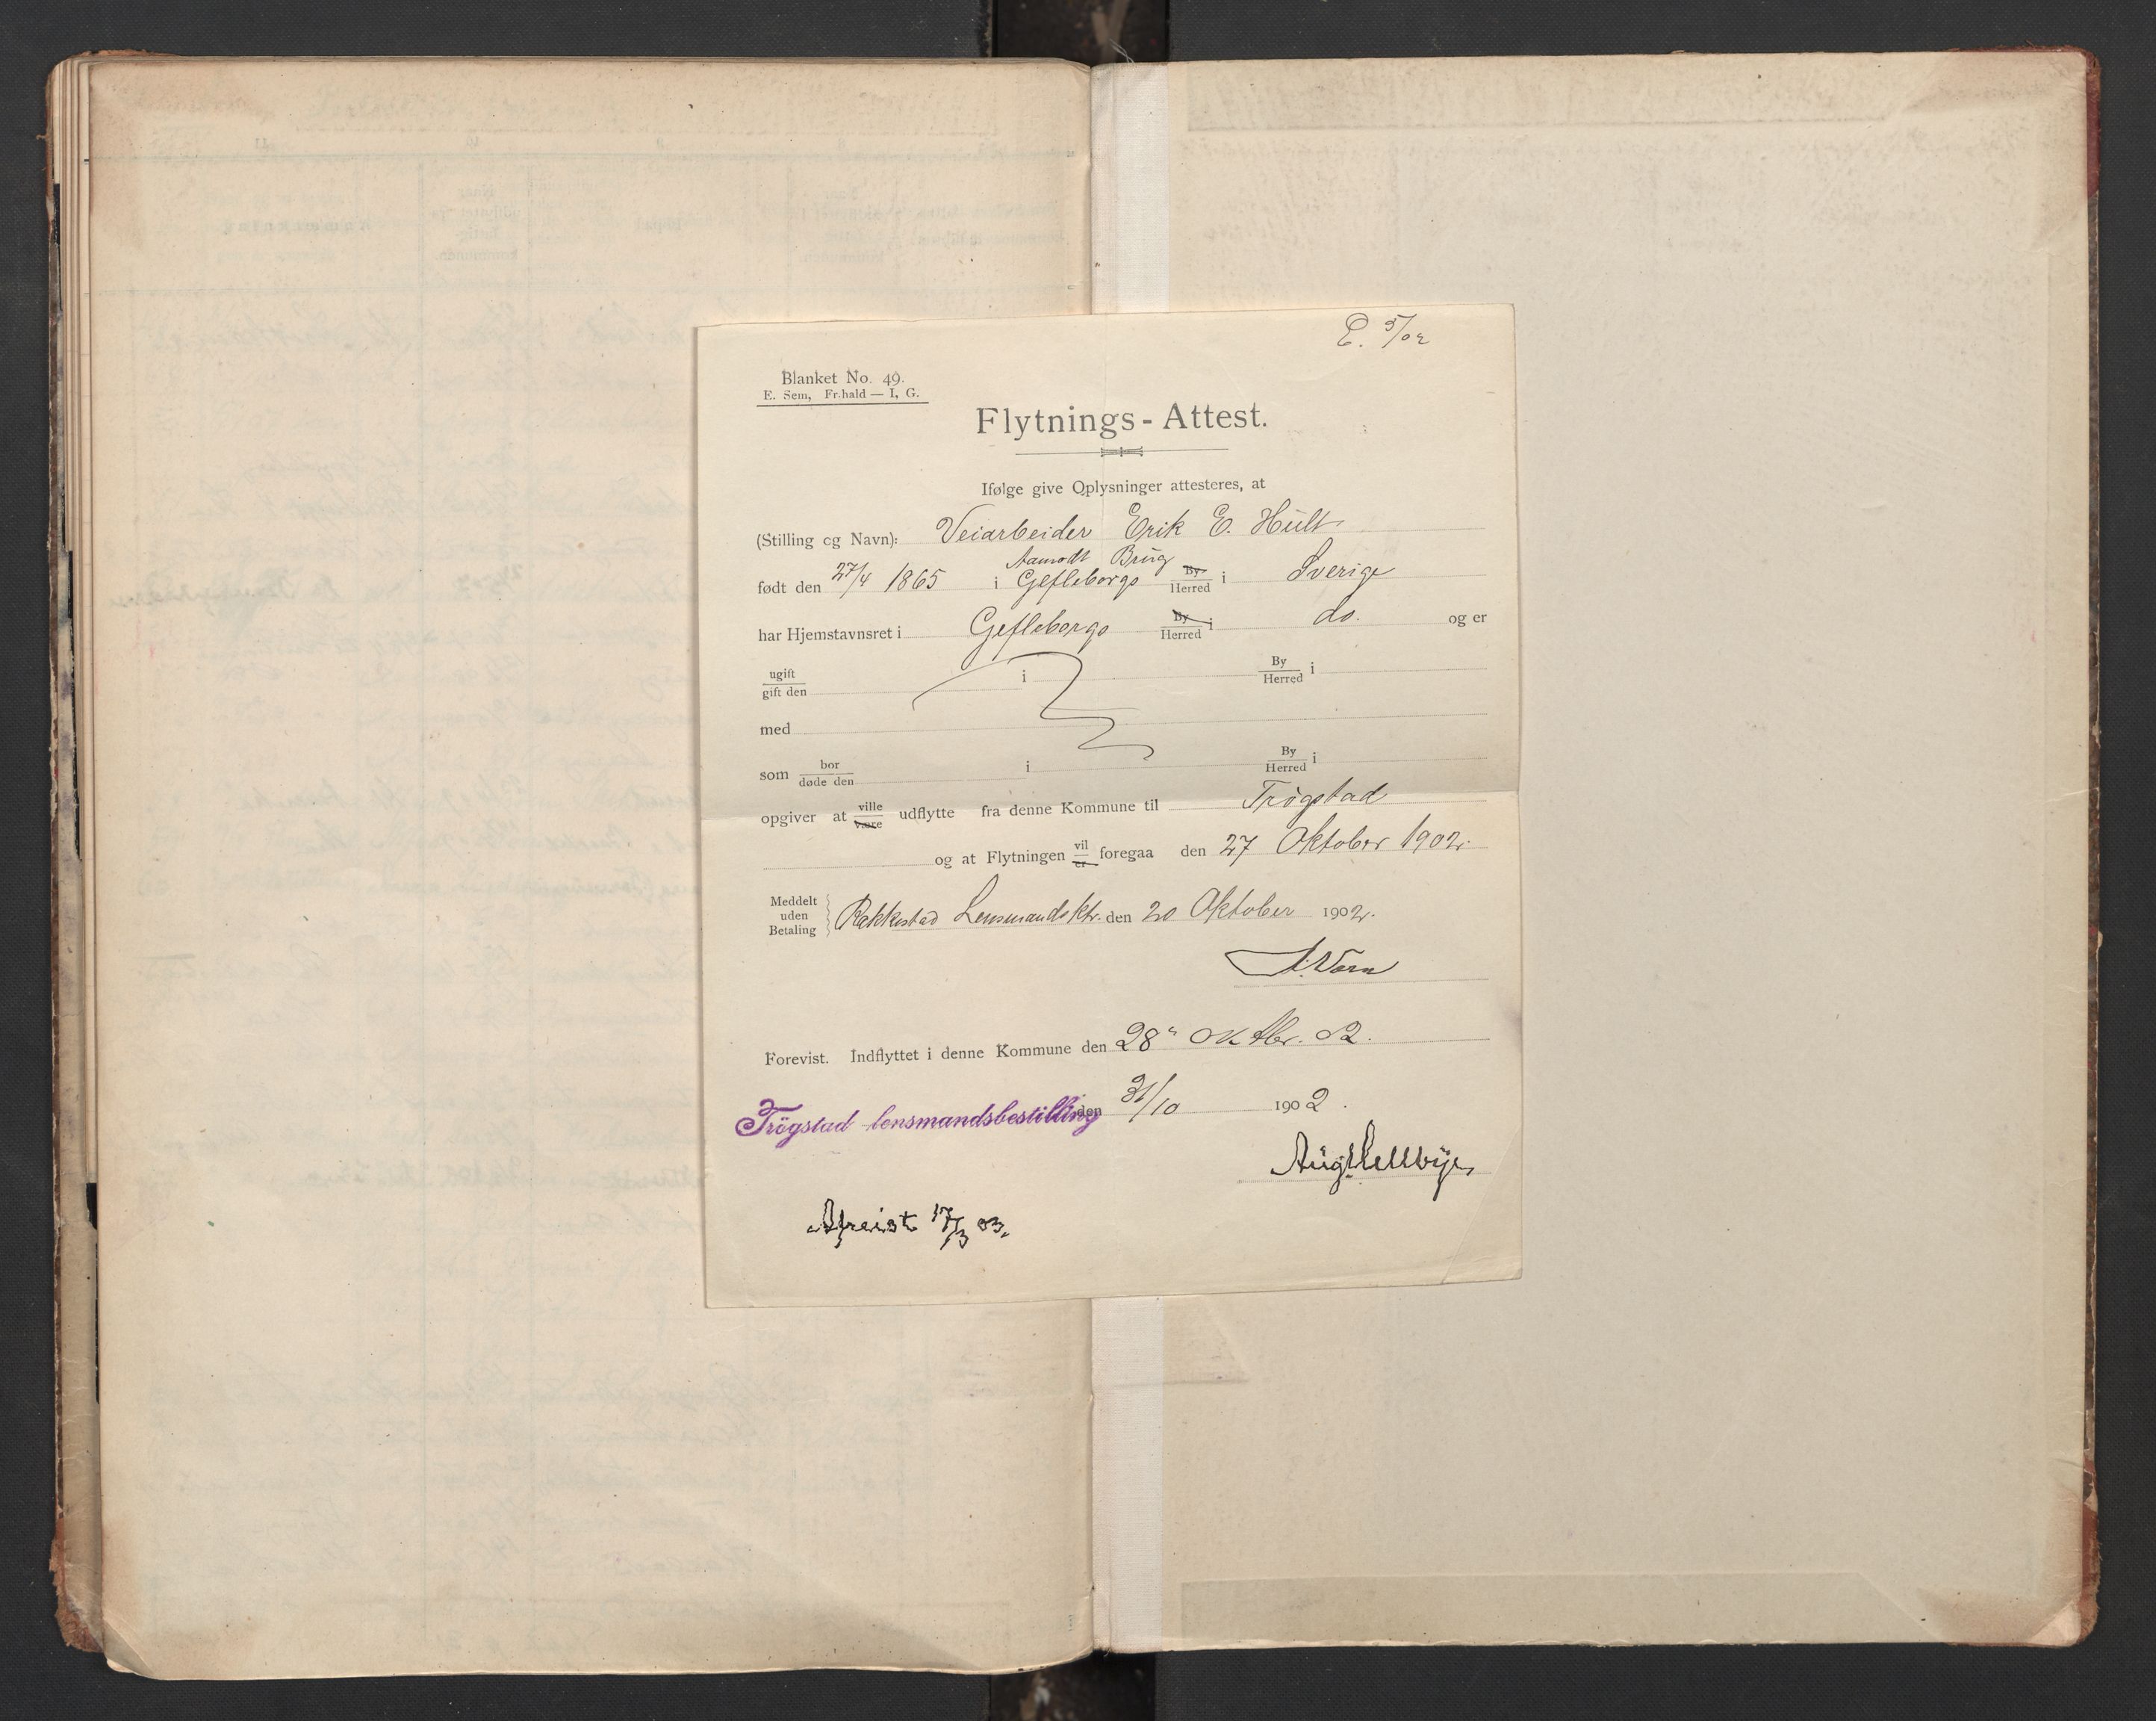 E. 5/02
Blanket No. 49.
E. Sem, Fr.hald — I, G.
Flytnings-Attest.
Ifølge give Oplysninger attesteres, at
(Stilling og Navn): Veiarbeider Erik E. Hult
Aamodt Brug
født den 27/4 1865 i Gefleborgs By Herred i Sverige
har Hjemstavnsret i Gefleborgs By Herred i do. og er
ugift gift den i By Herred i
med
som bor døde den i By Herred i
opgiver at ville være udflytte fra denne Kommune til Trøgstad
og at Flytningen vil er foregaa den 27 Oktober 1902.
Meddelt uden Betaling Rakkestad Lensmandsktr. den 20 Oktober 1902.
Forevist. Indflyttet i denne Kommune den 28 Oktbr. 02.
Trögstad lensmandsbestilling den 31/10 1902.
Afreist 17/3 03.